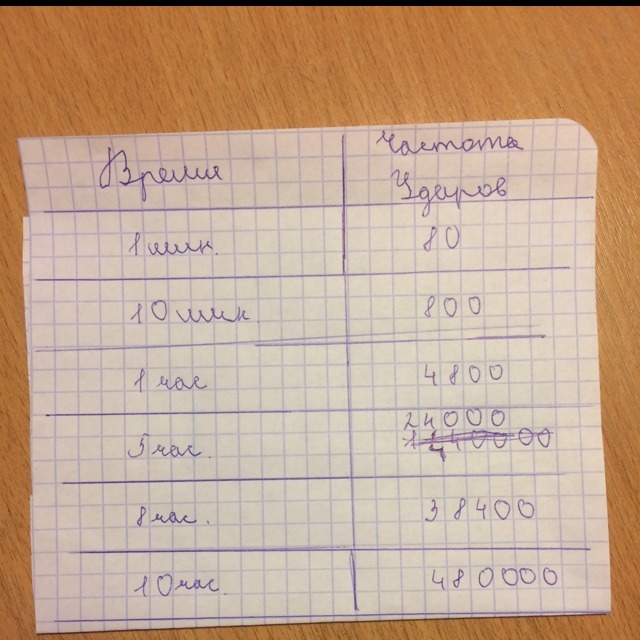 Время
Частота
Ударов
1 мин.
80
10 мин
800
1 час
4800
5 час.
24000
8 час.
38400
10 час.
480000